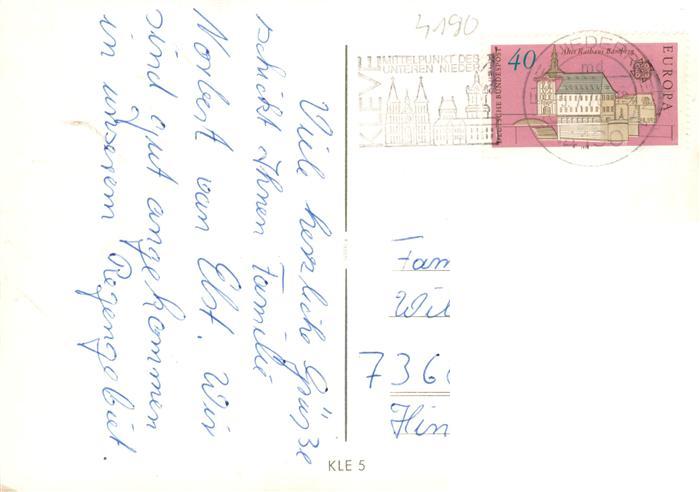 4190
KLEVE
MITTELPUNKT DES
UNTEREN NIEDER
40
Altes Rathaus Bamberg
DEUTSCHE BUNDESPOST
EUROPA
md
Viele herzliche Grüsse
schickt Ihnen Familie
Norbert van Elst. Wir
sind gut angekommen
in unserem Regengebiet.
Fam
Wil
736
Hin
KLE 5